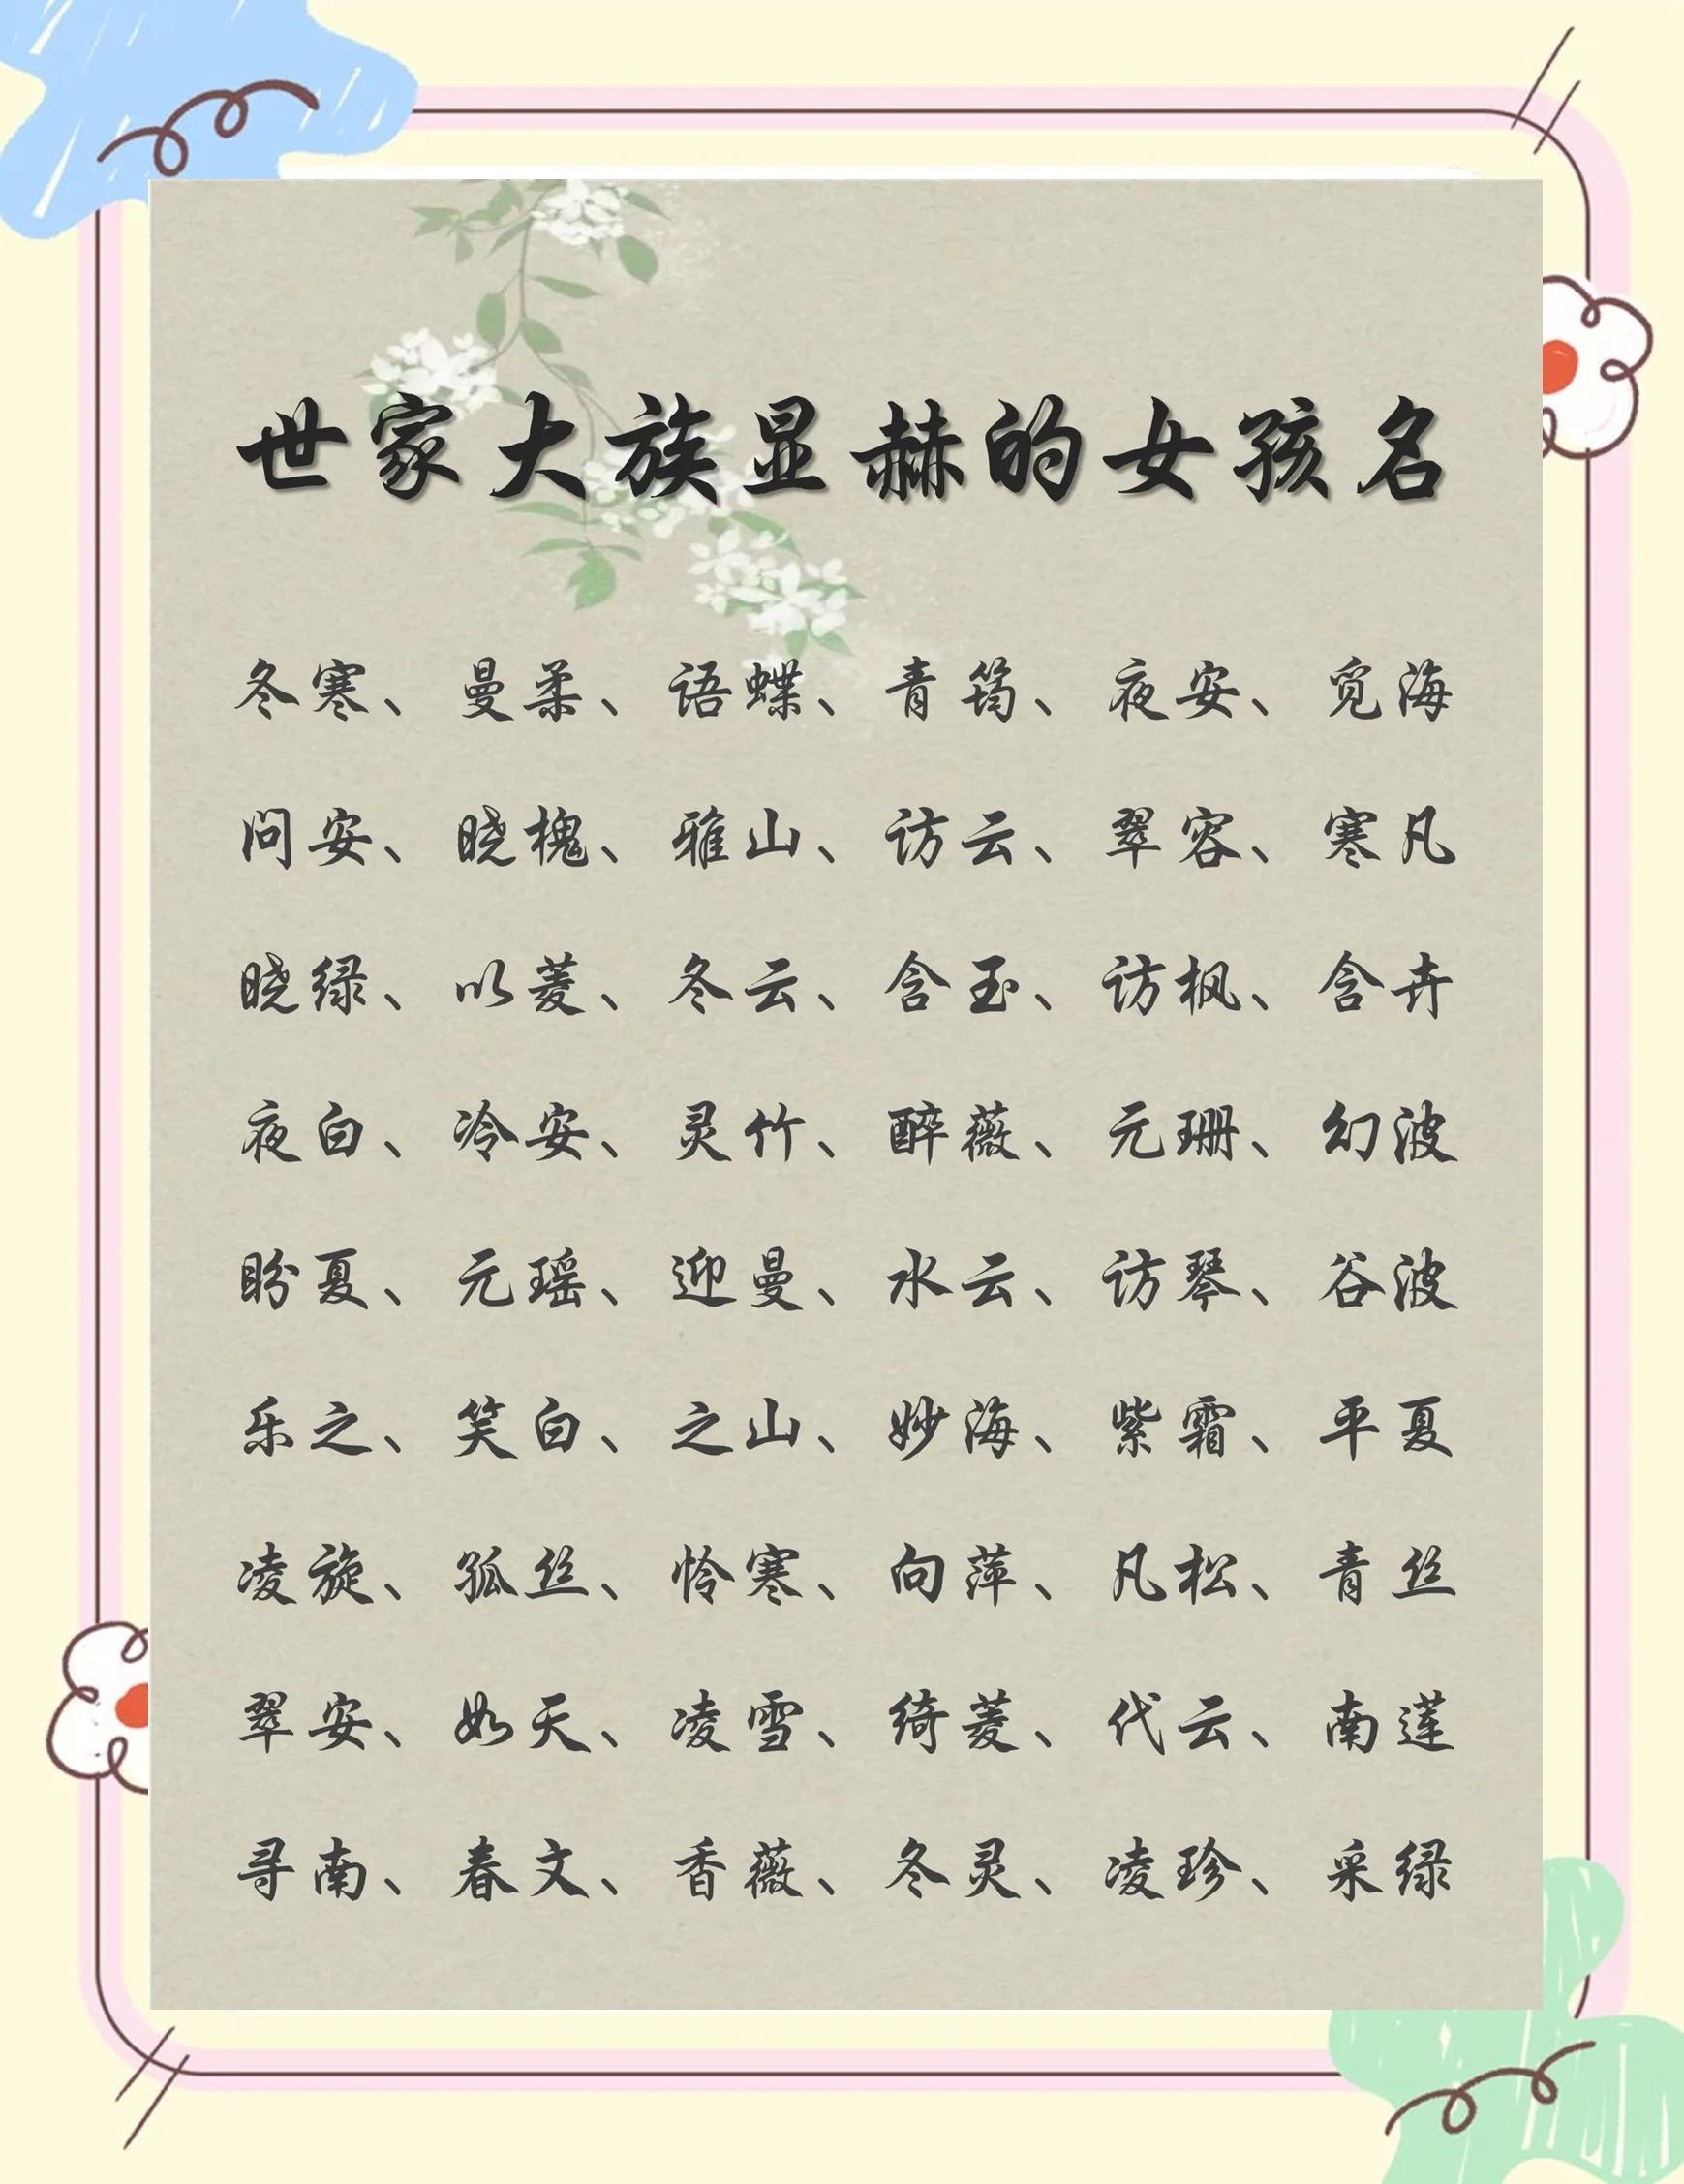 世家大族显赫的女孩名
冬寒、曼柔、语蝶、青筠、夜安、觅海
问安、晓槐、雅山、访云、翠容、寒凡
晓绿、以菱、冬云、含玉、访枫、含卉
夜白、冷安、灵竹、醉薇、元珊、幻波
盼夏、元瑶、迎曼、水云、访琴、谷波
乐之、笑白、之山、妙海、紫霜、平夏
凌旋、孤丝、怜寒、向萍、凡松、青丝
翠安、如天、凌雪、绮菱、代云、南莲
寻南、春文、香薇、冬灵、凌珍、采绿